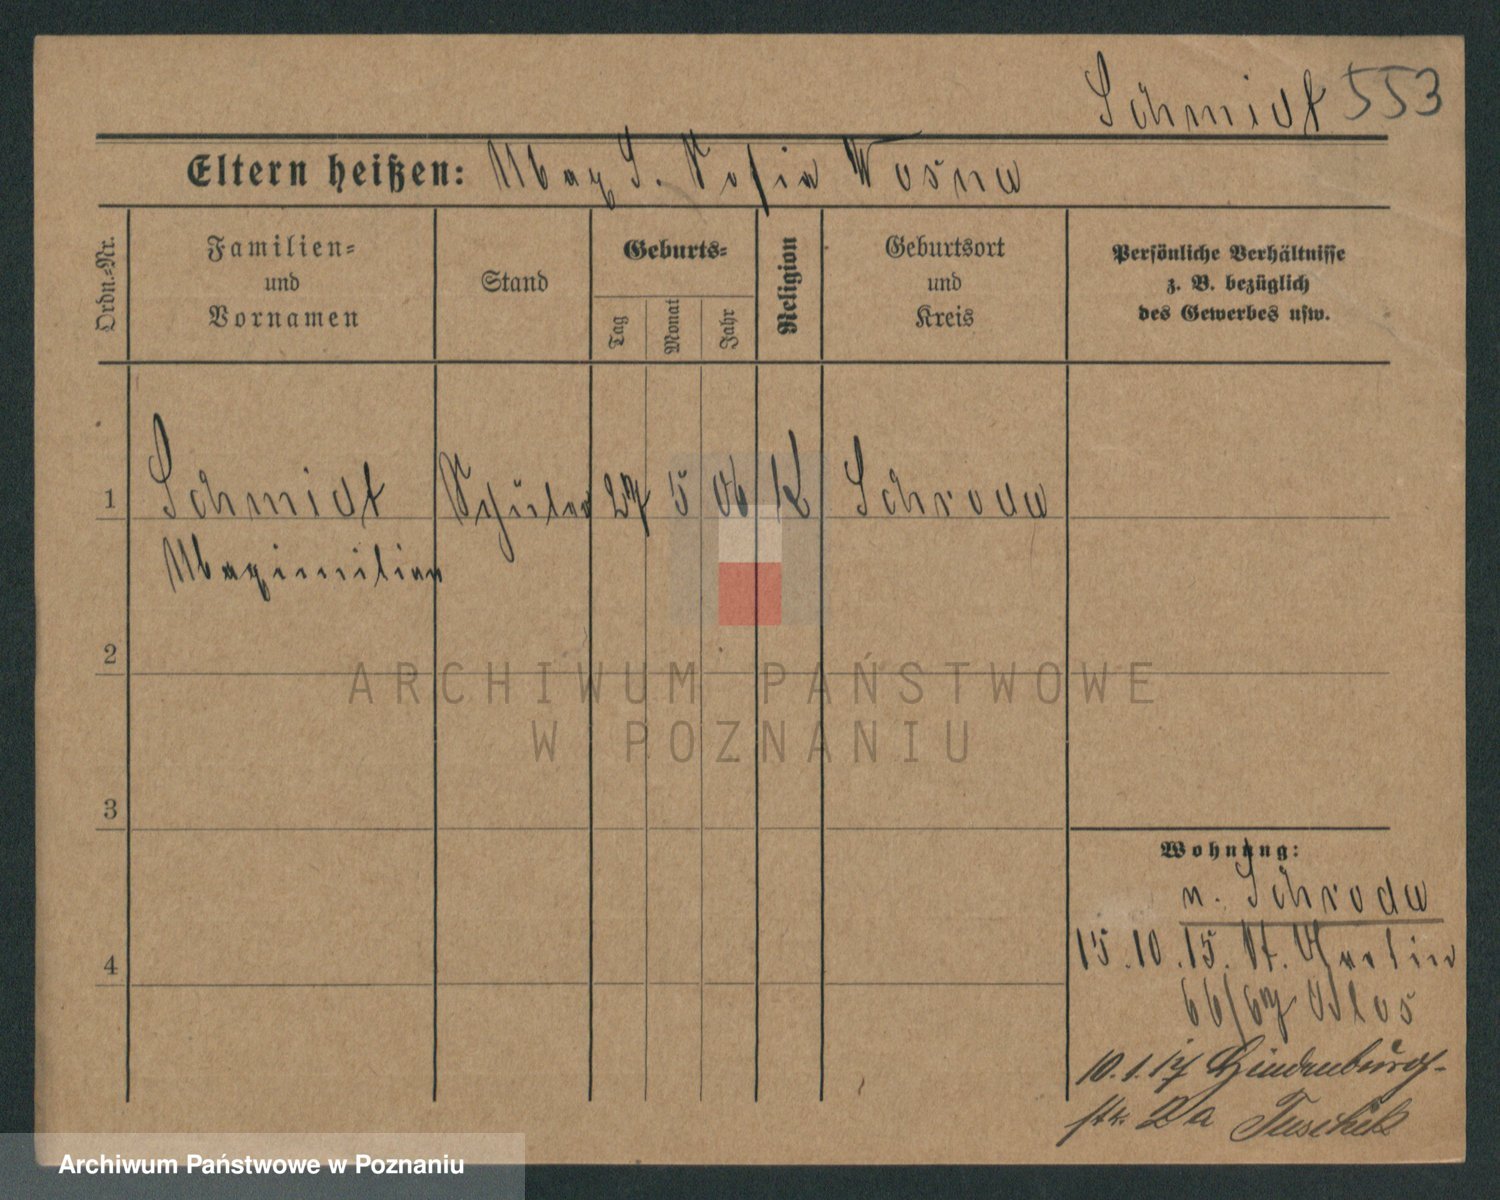 Schmidt 553
Eltern heißen: Max S. Sofia Wosna
Ordn.-Nr.
Familien-
und
Vornamen
Stand
Geburts-
Tag
Monat
Jahr
Religion
Geburtsort
und
Kreis
Persönliche Verhältnisse
z. B. bezüglich
des Gewerbes usw.
1 Schmidt Schüler 27 5 06 K Schroda
Maximilian
2
3
4
Wohnung:
n. Schroda
15.10.15. St. Martin
66/67
10.1.17 Hindenburg-
str. 2a Tuschik
ARCHIWUM PAŃSTWOWE
W POZNANIU
Archiwum Państwowe w Poznaniu